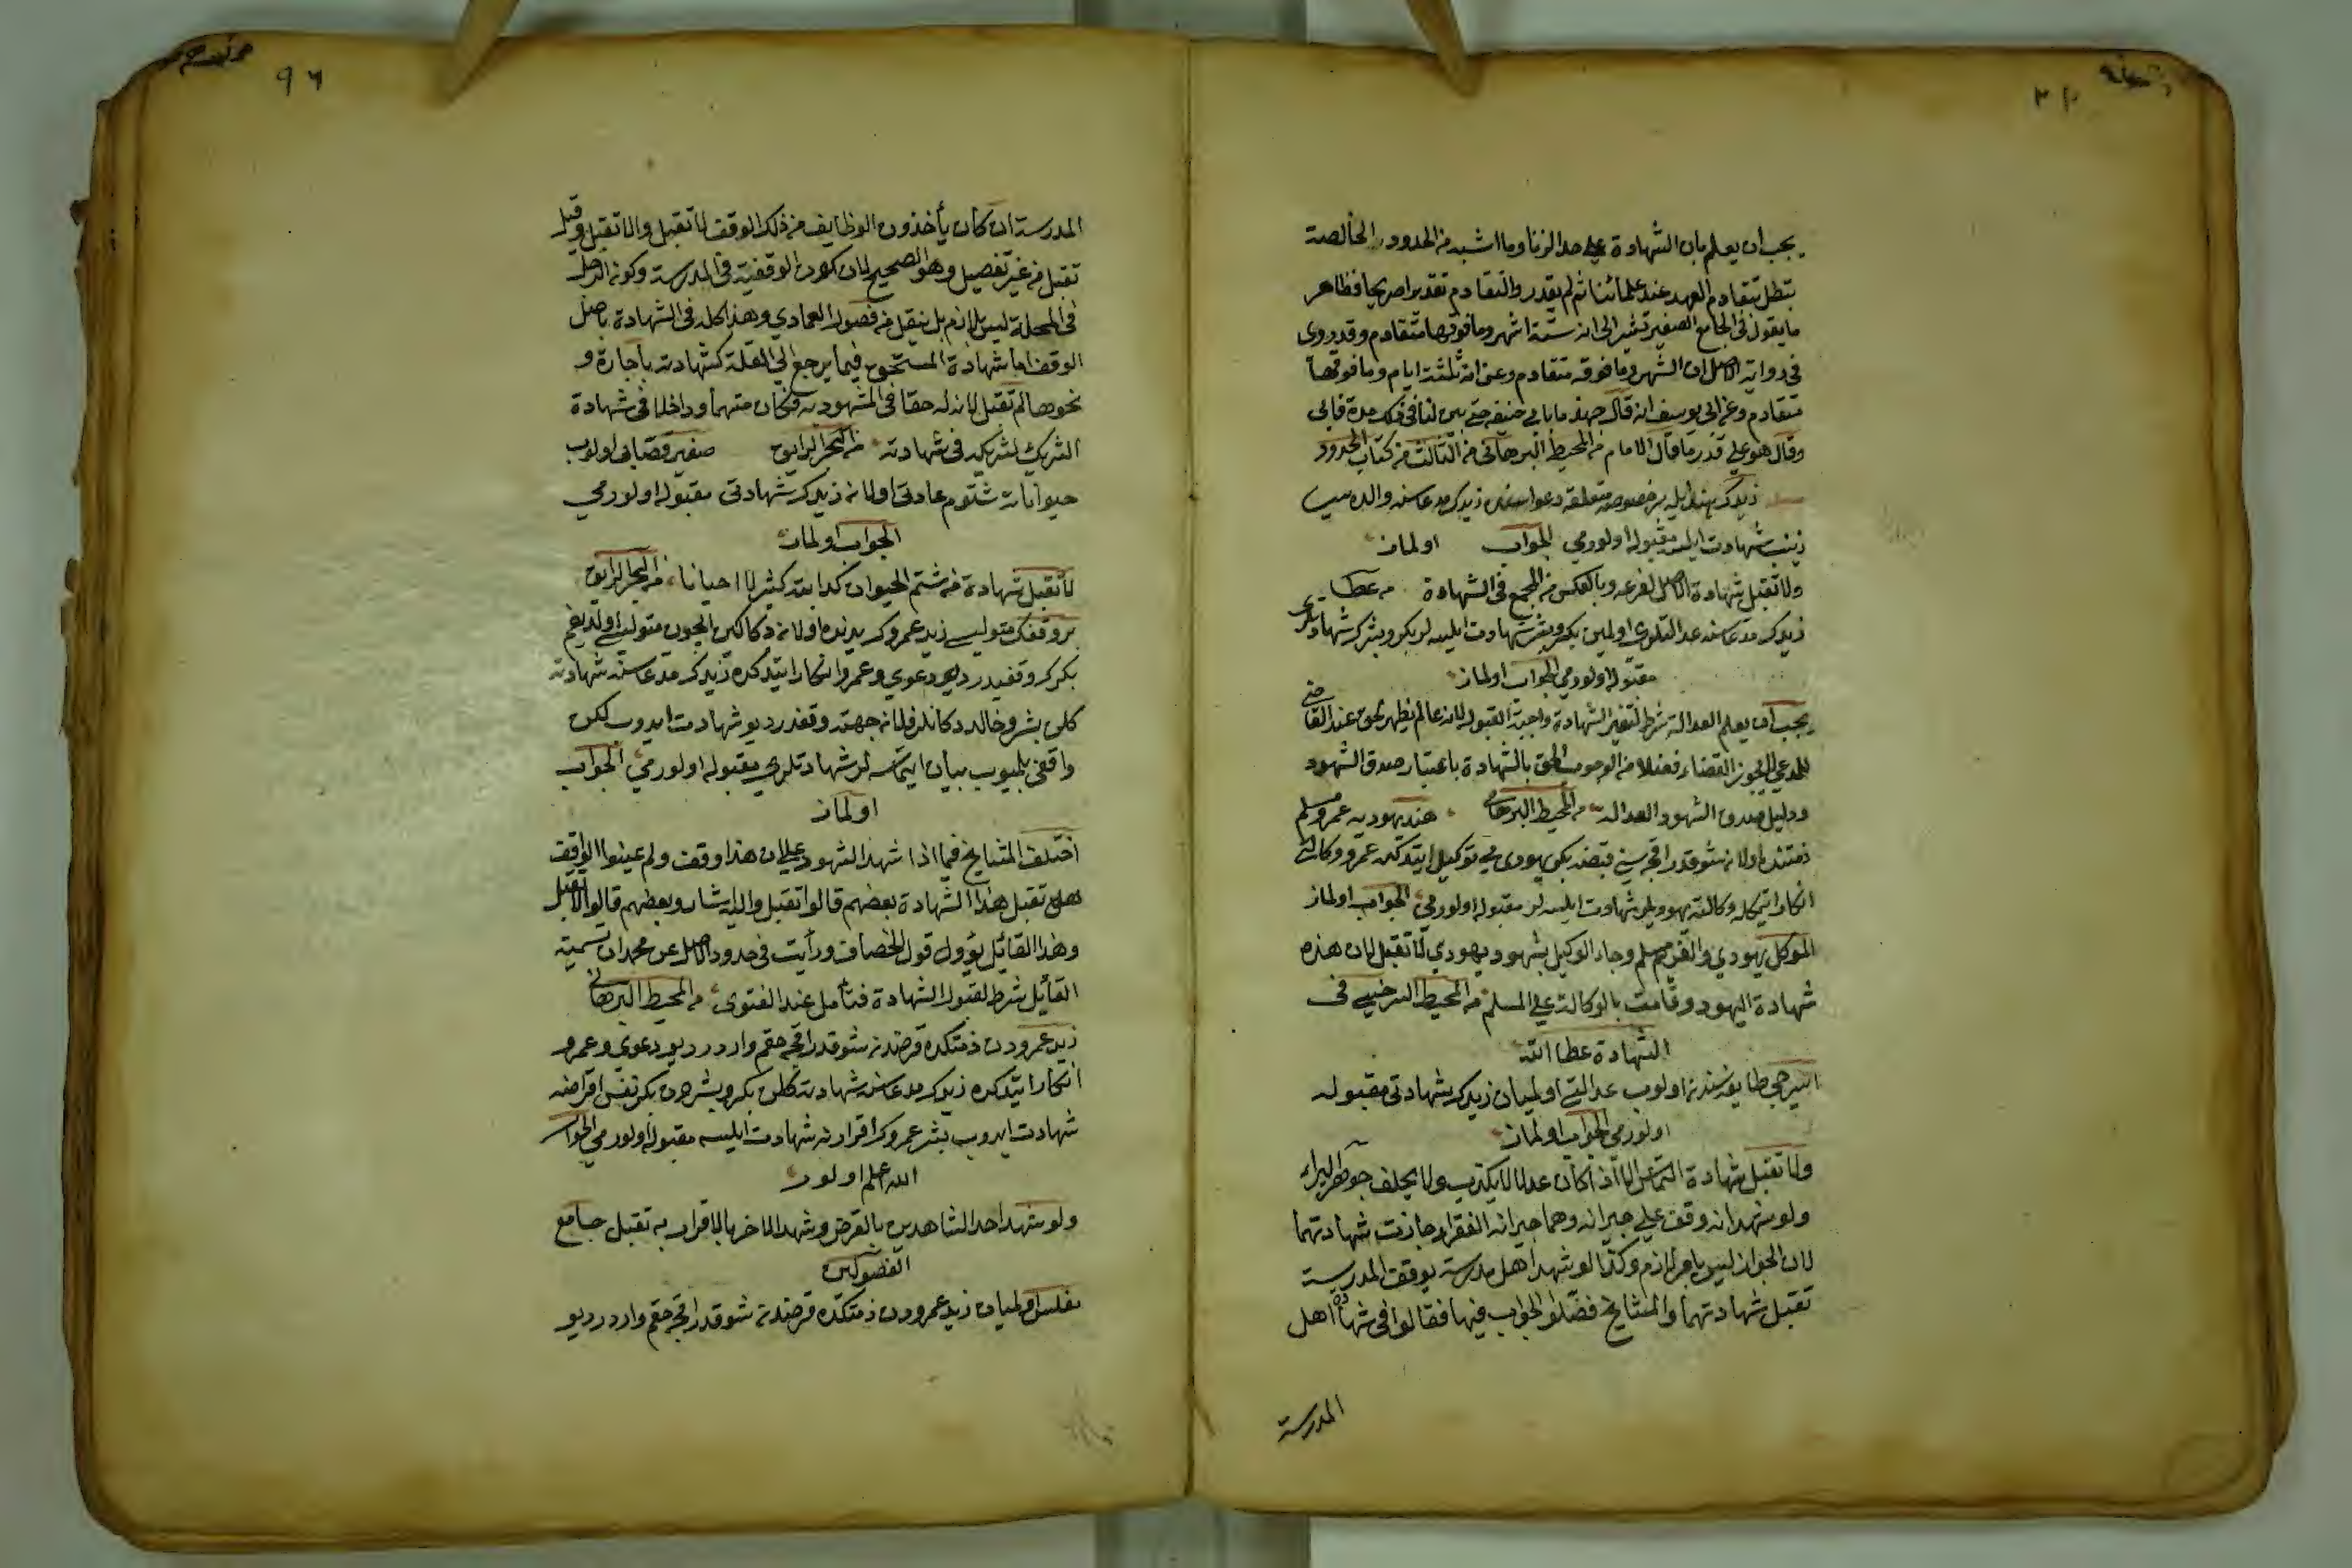 يجب ان يعلم بان الشهادة على حد الزنا وما اشبه من الحدود الخالصة
تبطل بتقادم العهد عند علمائنا ثم لم يقدر والتقادم تقديرا صريحا فظاهر
ما يقول في الجامع الصغير تشير الى انه ستة اشهر وما فوقها متقادم وقد روى
في رواية الاصل ان الشهر وما فوقه متقادم وعن انه ثلثة ايام وما فوقها
متقادم وعن ابي يوسف انه قال جهدنا بابي حنيفه حتى يبين لنا في ذلك مدة فابى
وقال هو على قدر ما قال الامام من المحيط البرهاني من الثالث من كتاب الحدود
زيدك هند ايله بر خصوصه متعلقه دعواسنده زيدك مدعاسنه والده سى
زينب شهادت ايلسه مقبوله اولورمى الجواب اولماز
ولا تقبل شهادة الاصل لفرعه وبالعكس من المجمع في الشهادة من عطا
زيدك مدعاسنه عدالتلرى اولمين بكر وبشر شهادت ايلسه لر بكر وبشرك شهادتلرى
مقبوله اولورمى الجواب اولماز
يجب ان يعلم العدالة شرط لتغير الشهادة واجبة القبول لانه مالم يظهر الحق عند القاضي
للمدعي لا يجوز القضاء فضلا من الوجوب الحق بالشهادة باعتبار صدق الشهود
ودليل صدق الشهود العدالة من المحيط البرهاني هند يهوديه عمرو مسلم
ذمتنده اولان شو قدر اقچه سنى قبضه بكر يهودى يى توكيل ايتدكين عمرو وكالتى
انكار ايتمكله وكالته يهوديلر شهادت ايلسه لر مقبوله اولورمى الجواب اولماز
الموكل يهودي والغريم مسلم وجاء الوكيل بشهود يهودي لا تقبل لان هذه
شهادة اليهود وقامت بالوكالة على المسلم من المحيط السرخسي في
الشهادة عطاالله
اسيرجى طايفه سندن اولوب عدالتى اولميان زيدك شهادتى مقبوله
اولورمى الجواب اولماز
ولا تقبل شهادة النخاس الا اذا كان عدلا لا يكذب ولا يحلف جواهر
ولو شهد انه وقف على جيرانه وهما جيرانه الفقراء جازت شهادتهما
لان الجوار ليس بامر لازم وكذا لو شهد اهل مدرسة بوقف المدرسة
تقبل شهادتهما والمشايخ فصلوا الجواب فيها فقالوا في شهادة اهل
المدرسة
٩٦
المدرسة ان كان يأخذون الوظايف من ذلك الوقف لا تقبل والا تقبل وقيل
تقبل من غير تفصيل وهو الصحيح لان كون الوقفية في المدرسة وكون الرجل
في المحلة ليس بلازم بل ينقل من فصول العمادي وهذا كله في الشهادة باصل
الوقف اما شهادة المستحق فيما يرجع الى الغلة كشهادته باجارة و
نحوها لم تقبل لان له حقا في المشهود به فكان متهما وداخلا في شهادة
الشريك لشريكه في شهادته من البحر الرايق صغير قصابى اولوب
حيواناته شتوم عادتى اولان زيدك شهادتى مقبوله اولورمى
الجواب اولماز
لا تقبل شهادة من شتم الحيوان كدابته كثيرا لا احيانا من البحر الرايق
بر وقفك متوليسى زيد عمروك يدنده اولان دكان ايچون متوليسى اولديغم
بكرك وقفيدر ديو دعوى وعمرو انكار ايتدكده زيدك مدعاسنه شهادته
كلن بشر وخالد دكاندر فلان جهته وقفدر ديو شهادت ايدوب لكن
واقفى بلميوب بيان ايتمسه لر شهادتلرى مقبوله اولورمى الجواب
اولماز
اختلف المشايخ فيما اذا شهد الشهود على ان هذا وقف ولم عينوا الواقف
هل تقبل هذا الشهادة بعضهم قالوا تقبل واليه اشار وبعضهم قالوا لا تقبل
وهذا القائل يؤول قول الخصاف ورأيت في حدود الاصل عن محمد ان تسمية
القائل شرط لقبول الشهادة فتأمل عند الفتوى من المحيط البرهاني
زيد عمرودن ذمتكده قرضدن شو قدر اقچه حقم واردر ديو دعوى وعمرو
انكار ايتدكده زيدك مدعاسنه شهادته كلن بكر وبشردن بكر نفس اقراضه
شهادت ايدوب بشر عمروك اقرارينه شهادت ايلسه مقبوله اولورمى الجواب
الله اعلم اولور
ولو شهد احد الشاهدين بالقرض وشهد الاخر بالاقرار به تقبل جامع
الفصولين
مفلس اولميان زيد عمرودن ذمتكده قرضدن شو قدر اقچه حقم واردر ديو